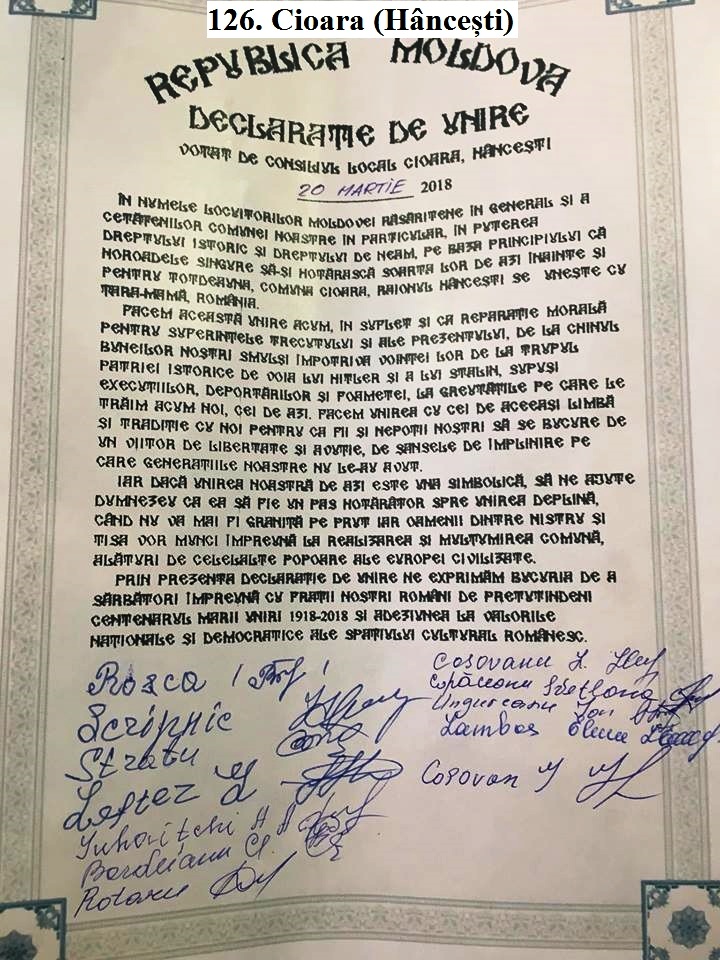 126. Cioara (Hâncești)
REPUBLICA MOLDOVA
DECLARAȚIE DE UNIRE
VOTAT DE CONSILIUL LOCAL CIOARA, HÂNCEȘTI
20 MARTIE 2018
ÎN NUMELE LOCUITORILOR MOLDOVEI RĂSĂRITENE ÎN GENERAL ȘI A
CETĂȚENILOR COMUNEI NOASTRE ÎN PARTICULAR, ÎN PUTEREA
DREPTULUI ISTORIC ȘI DREPTULUI DE NEAM, PE BAZA PRINCIPIULUI CĂ
NOROADELE SINGURE SĂ-ȘI HOTĂRASCĂ SOARTA LOR DE AZI ÎNAINTE ȘI
PENTRU TOTDEAUNA, COMUNA CIOARA, RAIONUL HÂNCEȘTI SE UNEȘTE CU
ȚARA-MAMĂ, ROMÂNIA.
FACEM ACEASTĂ UNIRE ACUM, ÎN SUFLET ȘI CA REPARAȚIE MORALĂ
PENTRU SUFERINȚELE TRECUTULUI ȘI ALE PREZENTULUI, DE LA CHINUL
BUNEILOR NOȘTRI SMULȘI ÎMPOTRIVA VOINȚEI LOR DE LA TRUPUL
PATRIEI ISTORICE DE VOIA LUI HITLER ȘI A LUI STALIN, SUPUȘI
EXECUȚIILOR, DEPORTĂRILOR ȘI FOAMETEI, LA GREUTĂȚILE PE CARE LE
TRĂIM ACUM NOI, CEI DE AZI. FACEM UNIREA CU CEI DE ACEEAȘI LIMBĂ
ȘI TRADIȚIE CU NOI PENTRU CA FII ȘI NEPOȚII NOȘTRI SĂ SE BUCURE DE
UN VIITOR DE LIBERTATE ȘI AVUȚIE, DE ȘANSELE DE ÎMPLINIRE PE
CARE GENERAȚIILE NOASTRE NU LE-AU AVUT.
IAR DACĂ UNIREA NOASTRĂ DE AZI ESTE UNA SIMBOLICĂ, SĂ NE AJUTE
DUMNEZEU CA EA SĂ FIE UN PAS HOTĂRÂTOR SPRE UNIREA DEPLINĂ,
CÂND NU VA MAI FI GRANIȚĂ PE PRUT IAR OAMENII DINTRE NISTRU ȘI
TISA VOR MUNCI ÎMPREUNĂ LA REALIZAREA ȘI MULȚUMIREA COMUNĂ,
ALĂTURI DE CELELALTE POPOARE ALE EUROPEI CIVILIZATE.
PRIN PREZENTA DECLARAȚIE DE UNIRE NE EXPRIMĂM BUCURIA DE A
SĂRBĂTORI ÎMPREUNĂ CU FRAȚII NOȘTRI ROMÂNI DE PRETUTINDENI
CENTENARUL MARII UNIRI 1918-2018 ȘI ADEZIUNEA LA VALORILE
NAȚIONALE ȘI DEMOCRATICE ALE SPAȚIULUI CULTURAL ROMÂNESC.
Roșca
Scripnic
Stratu
Lefter
Bordeianu
Rotaru
Cosovanu
Ungureanu Ion
Lambos Elena
Cosovan